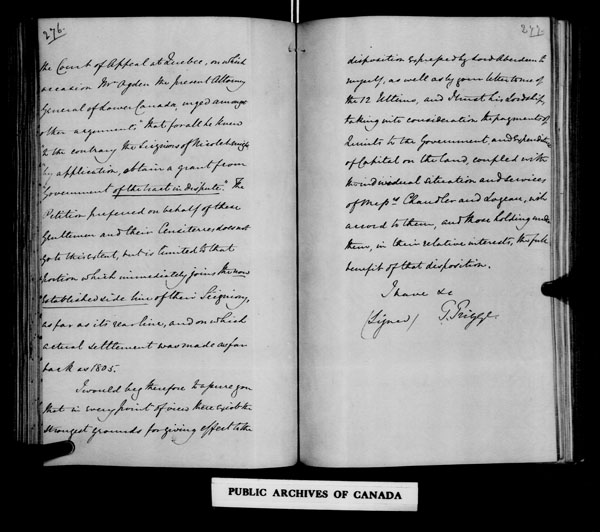 276.
the Court of Appeal at Quebec, on which
occasion Mr Ogden the present Attorney
General of Lower Canada, urged amongst
other arguments "that for all he knew
to the contrary the Seigniors of Nicolet might
by application, obtain a grant from
Government of the tract in dispute." The
Petition preferred on behalf of these
Gentlemen and their Censitaires, does not
go to this extent, but is limited to that
portion which immediately joins the now
established side line of their Seigniory,
as far as its rear line, and on which
actual settlement was made as far
back as 1805.
I would beg therefore to assure you
that in every point of view there exist the
strongest grounds for giving effect to the
277.
disposition expressed by Lord Aberdeen to
myself, as well as by your letter to me of
the 12 Ultimo, and I trust his Lordship,
taking into consideration the payments of
Quints to the Government, and Expenditure
of Capital on the land, coupled with
the individual situation and services
of Messrs Chandler and Lozeau, will
accord to them, and those holding under
them, in their relative interests, the full
benefit of that disposition.
I have &c
(Signed) Griggs
PUBLIC ARCHIVES OF CANADA